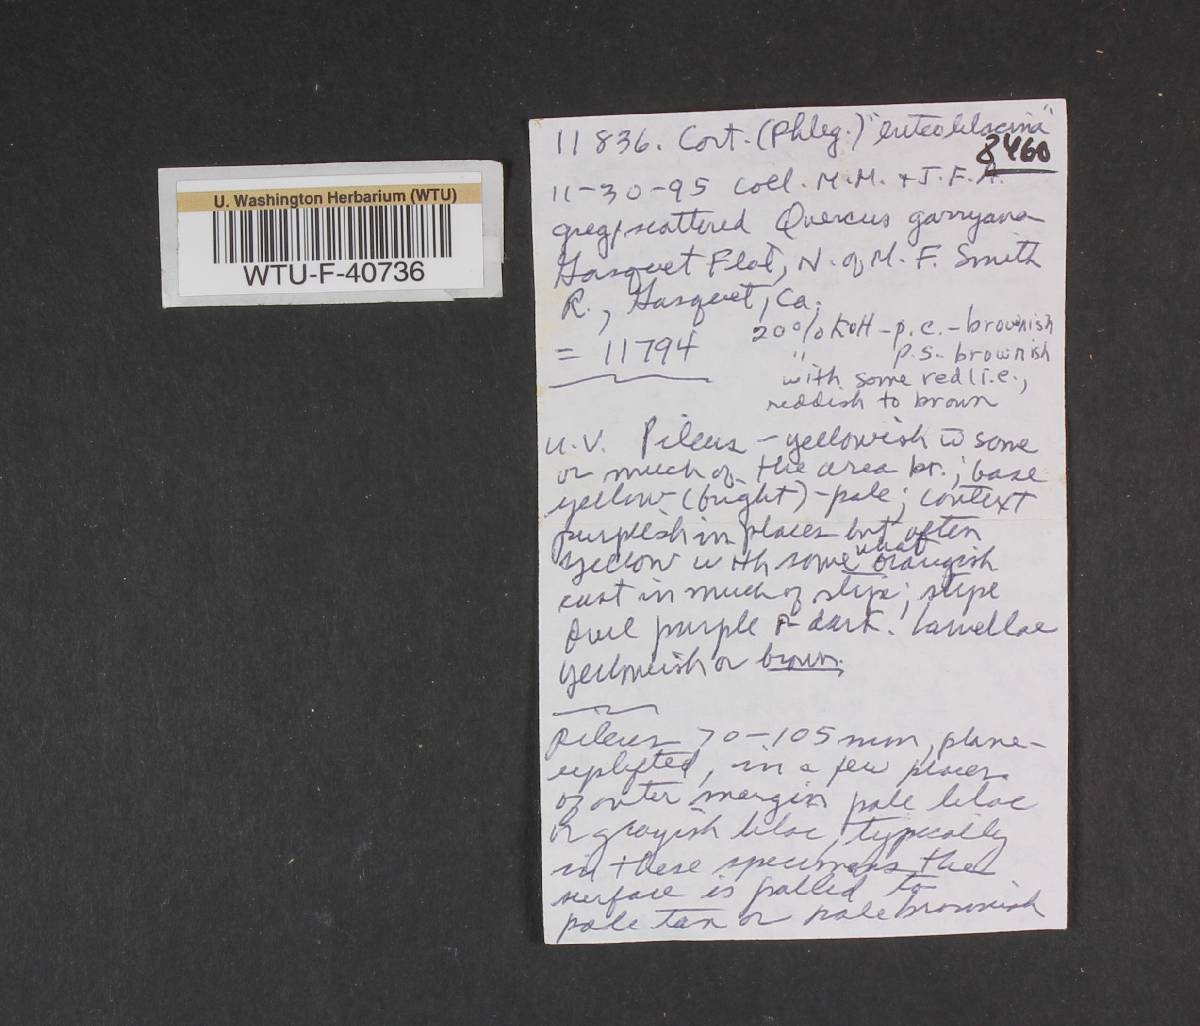 U. Washington Herbarium (WTU)
WTU-F-40736
11836. Cort. (Phleg.) "luteolilacina"
8460
11-30-95 Coll. M.M. + J.F.A.
greg/scattered Quercus garryana
Gasquet Flat, N. of M. F. Smith
R., Gasquet, Ca.
20% KOH - p.c. - brownish
= 11794 " p.s. brownish
with some red (i.e.,
reddish to brown
U.V. Pileus - yellowish w̄ some
or much of the area br.; base
yellow (bright) - pale; context
purplish in places but often
what
yellow with some orangish
cast in much of stipe; stipe
dull purple & dark. Lamellae
yellowish or brown.
Pileus 70-105 mm, plane-
uplifted, in a few places
of outer margin pale lilac
or grayish lilac, typically
in these specimens the
surface is palled to
pale tan or pale brownish